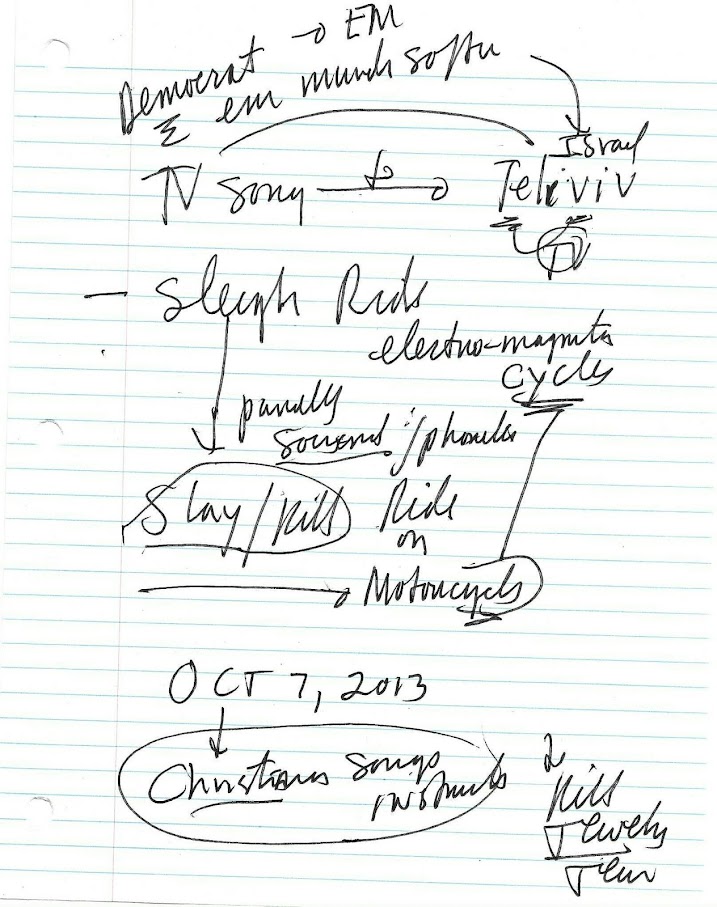 Democrat → EM
em munds softu
Israel
TV Song → Teliviv
TV
- Sleigh Rids
electro-magnetic
cycles
sound / phonetic
Slay / Kill Ride
on
→ Motorcycls
OCT 7, 2013
↓
Christians Songs
2
Kill
Jewely
Jew